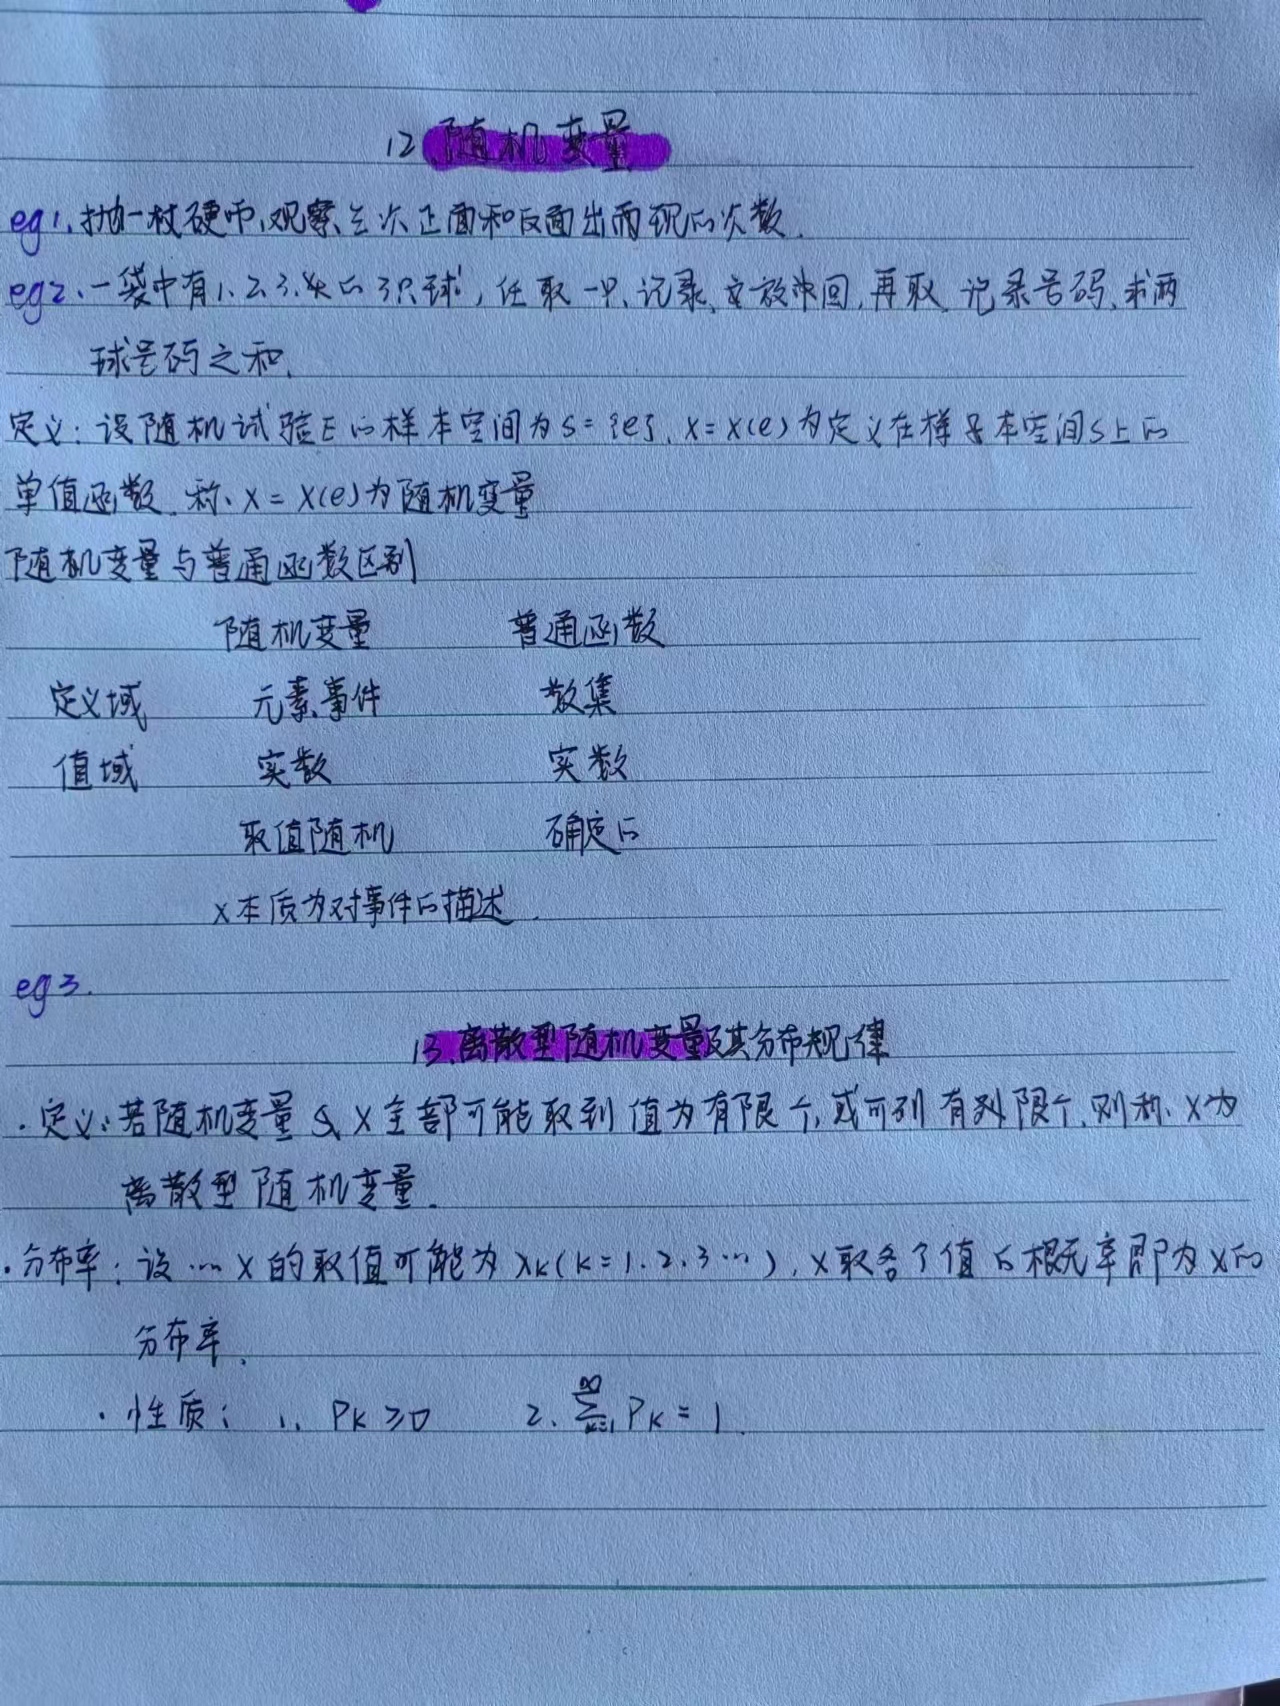 12.随机变量
eg1.抛一枚硬币,观察三次正面和反面出现的次数.
eg2.一袋中有1.2.3.的3只球,任取一只,记录,放回,再取,记录号码,求两
球号码之和.
定义:设随机试验E的样本空间为S={e},X=X(e)为定义在样本空间S上的
单值函数,称X=X(e)为随机变量
随机变量与普通函数区别
随机变量 普通函数
定义域 元素事件 数集
值域 实数 实数
取值随机 确定的
X本质为对事件的描述.
eg3.
13.离散型随机变量及其分布规律
·定义:若随机变量X全部可能取到值为有限个,或可列有限个,则称X为
离散型随机变量.
·分布率:设…X的取值可能为xk(k=1.2.3…),X取各个值的概率即为X的
分布率.
·性质: 1. Pk≥0 2. ∑_{k=1}^{∞} Pk=1.